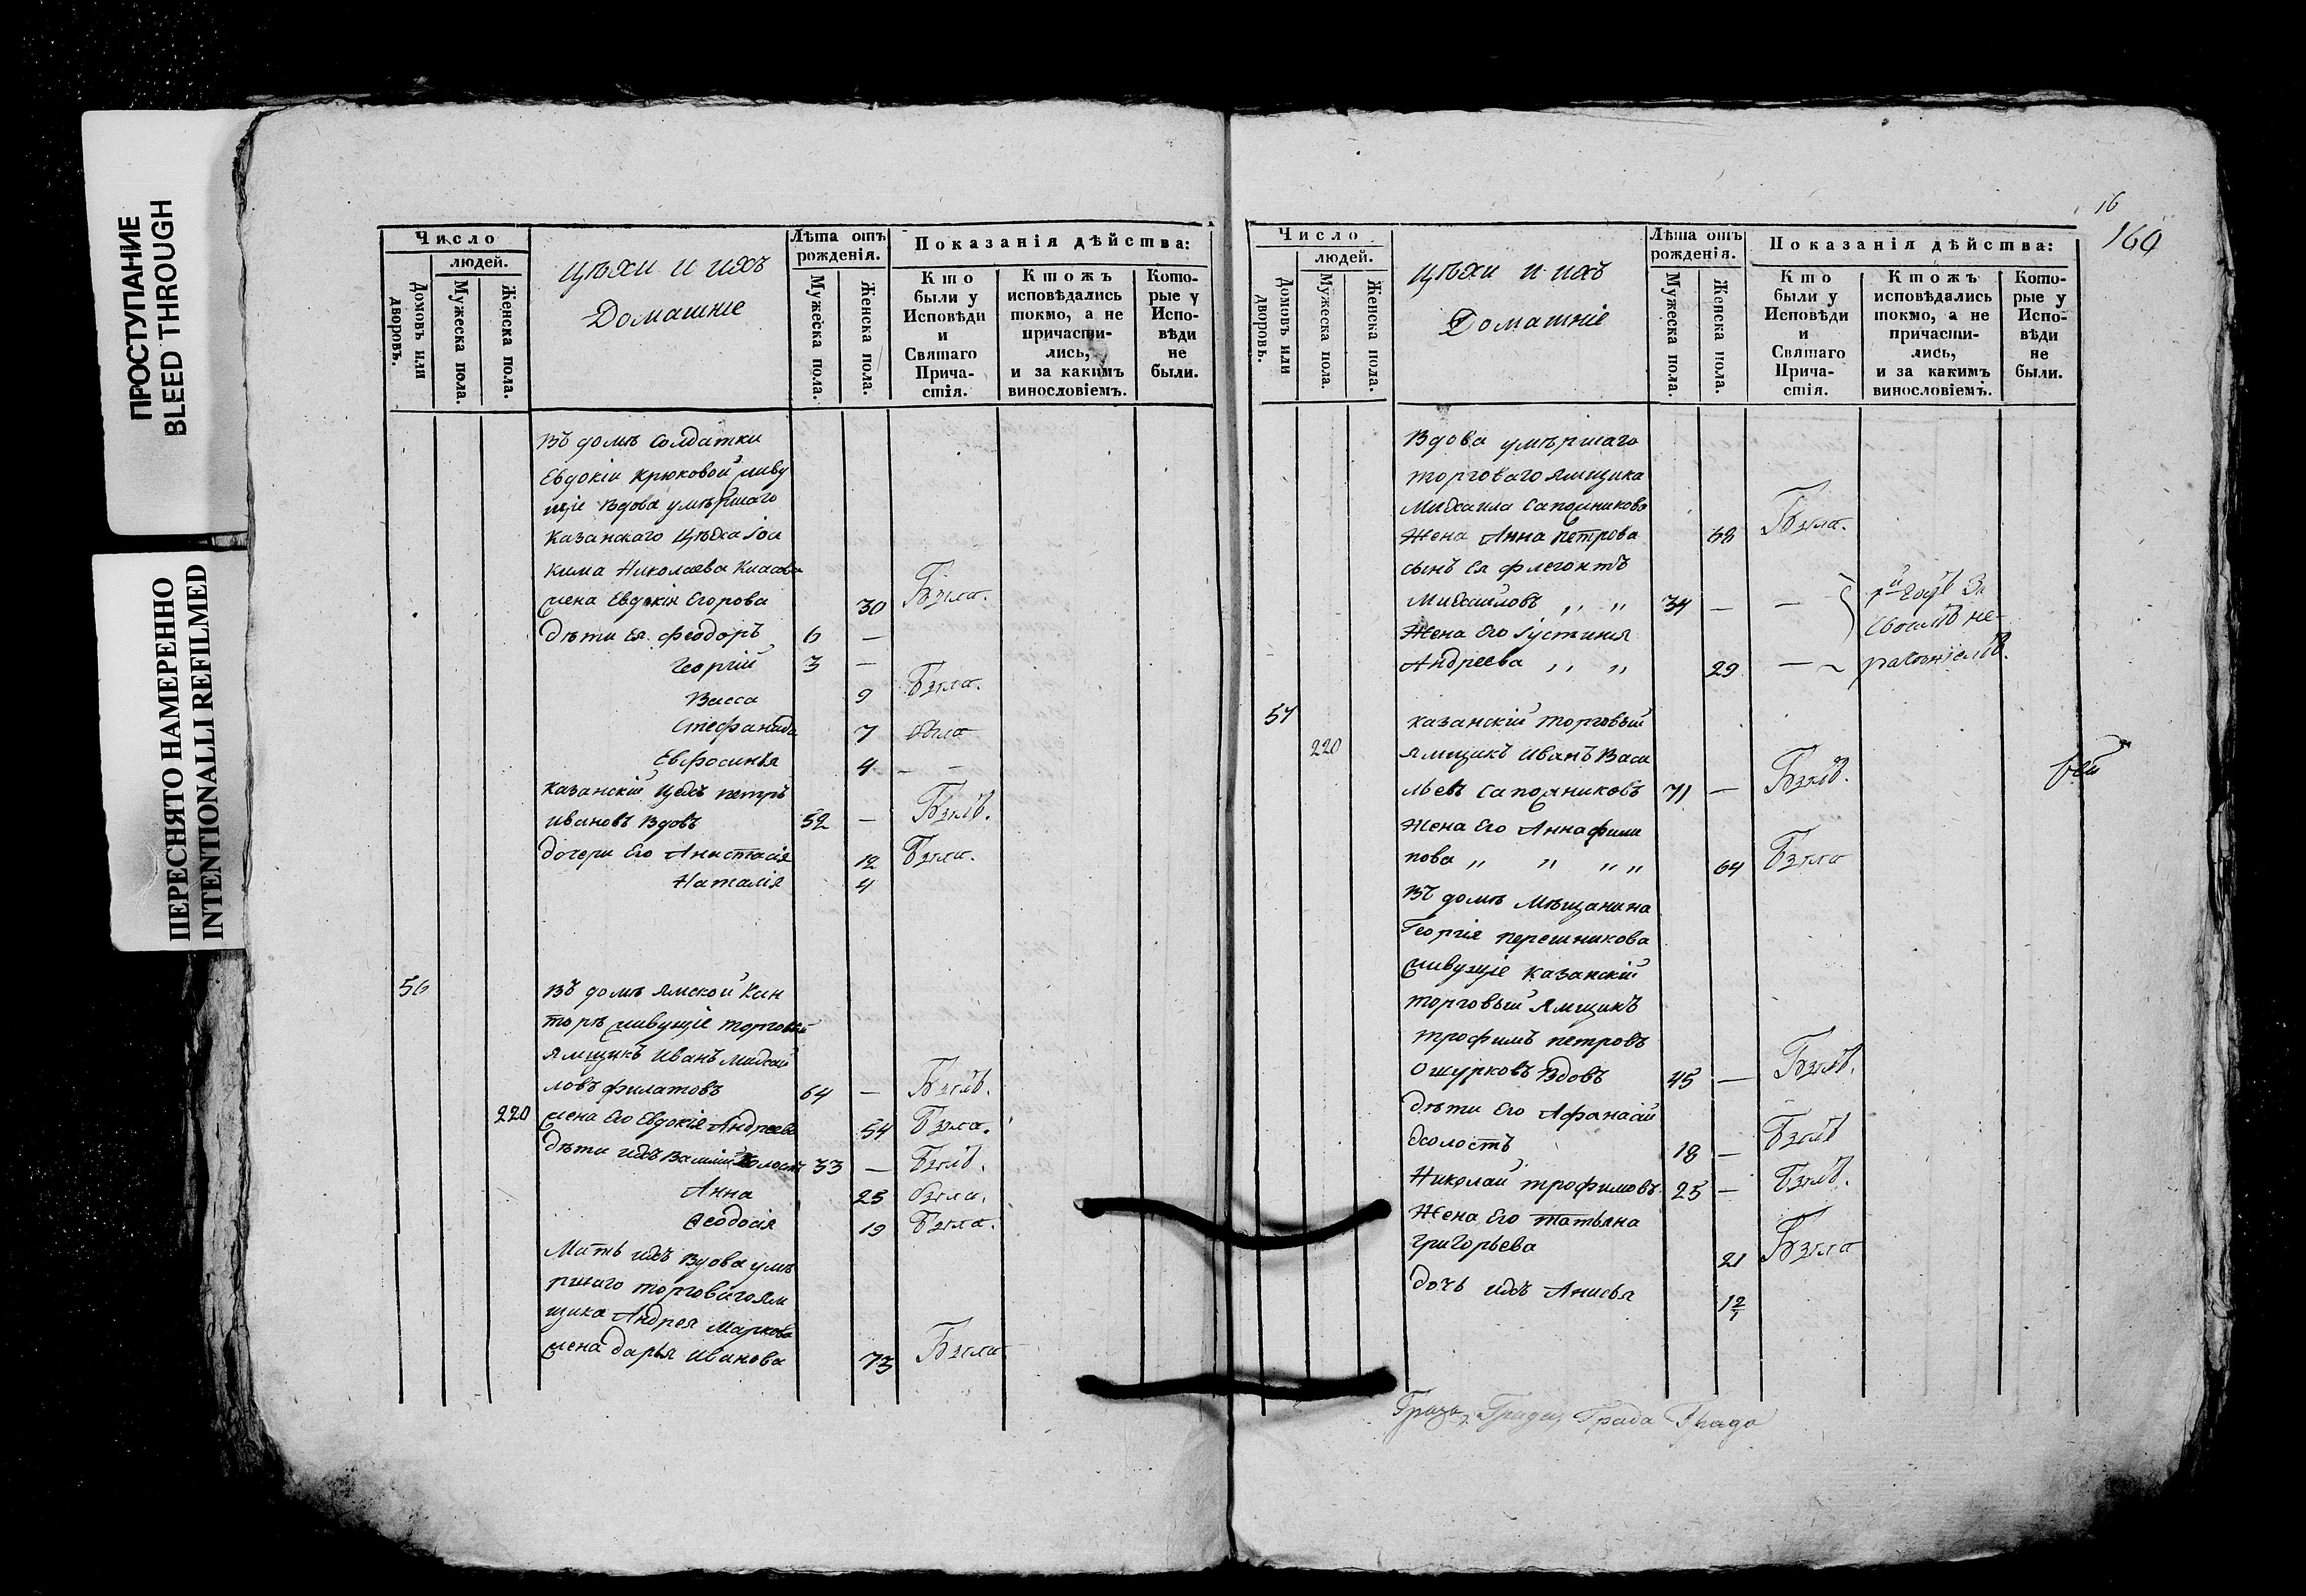 ПРОСТУПАНИЕ
BLEED THROUGH
ПЕРЕСНЯТО НАМЕРЕННО
INTENTIONALLI REFILMED
Число
людей.
Домовъ или дворовъ.
Мужеска пола.
Женска пола.
Цѣхи и ихъ
Домашніе
Лѣта отъ
рожденія.
Мужеска пола.
Женска пола.
Показанія дѣйства:
Кто
были у
Исповѣди
и
Святаго
Прича-
стія.
Ктожъ
исповѣдались
токмо, а не
причасти-
лись,
и за какимъ
винословіемъ.
Кото-
рые у
Испо-
вѣди
не
были.
Въ домѣ Солдатки
Евдокіи Крюковой живу
щіе Вдова умѣршаго
Казанскаго Цѣха Іоа
кима Николаева
жена Евдокія Егорова 30 Была.
дѣти Ея Феодоръ 6 —
Георгій 3 —
Васса 9 Была.
Стефанида 7 была
Евфосинья 4 — —
Казанскій Цехъ петръ
Ивановъ Вдовъ 52 — Былъ.
дочери Его Анастасія 12 Была.
Наталія 4
56 Въ домѣ Ямской Кон
торѣ живущіе торговой
Ямщикъ Иванъ Михай
ловъ филатовъ 64 — Былъ.
220 жена Его Евдокія Андреева 54 Была.
дѣти ихъ Василій холостъ 33 — Былъ.
Анна 25 была.
Феодосія 19 Была.
Мать ихъ Вдова умѣ
ршаго торговаго ям
щика Андрея Маркова
жена дарья Иванова 73 Была
16
160
Число
людей.
Домовъ или дворовъ.
Мужеска пола.
Женска пола.
Цѣхи и ихъ
Домашніе
Лѣта отъ
рожденія.
Мужеска пола.
Женска пола.
Показанія дѣйства:
Кто
были у
Исповѣди
и
Святаго
Прича-
стія.
Ктожъ
исповѣдались
токмо, а не
причасти-
лись,
и за какимъ
винословіемъ.
Кото-
рые у
Испо-
вѣди
не
были.
Вдова умѣршаго
торговаго ямщика
Михаила Сапожникова
Жена Анна петрова 68 Была.
сынъ Ея флегонтъ
Михайловъ 34 — —
Жена Его Іустинія
Андреева 29 —
своимъ не-
раченіемъ.
57 казанскій торговый
220 ямщикъ Иванъ Васи
льевъ Сапожниковъ 71 — Былъ.
Жена Его Анна фили
пова 64 Была
Въ домѣ Мѣщанина
Георгія перешникова
живущіе Казанскій
торговый Ямщикъ
трофимъ петровъ
Ошурковъ Вдовъ 45 — Былъ.
дѣти Его Афанасій
холостъ 18 — Былъ
Николай трофимовъ 25 — Былъ.
Жена Его татьяна
григорьева 21 Была
дочь ихъ Анисья 1 2
Града Града